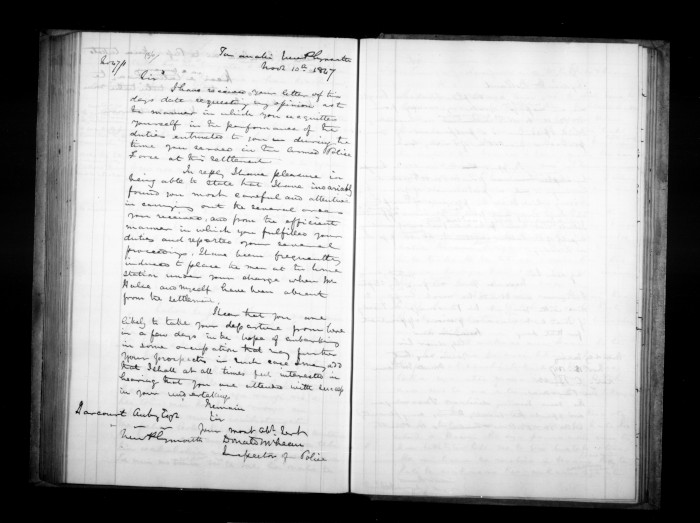 Taranaki New Plymouth
Nov 10th 1847
No 47/
Sir
I have received your letter of this
days date requesting my opinion as to
the manner in which you acquitted
yourself in the performance of the
duties entrusted to you during the
time you served in the Armed Police
Force at this settlement
In reply I have pleasure in
being able to state that I have invariably
found you most careful and attentive
in carrying out the several orders
you received, and from the efficient
manner in which you fulfilled your
duties and reported your several
proceedings, I have been frequently
induced to place the men at the
Station under your charge when Mr
Halse and myself have been absent
from the settlement.
I hear that you are
likely to take your departure from here
in a few days in the hope of embarking
in some occupation that may further
your prospects in such case I may add
that I shall at all times feel interested in
hearing that you are attended with success
in your undertaking
I remain
Sir
Your most obt Servt
Donald McLean
Inspector of Police
Harcourt Aubrey Esqr
New Plymouth